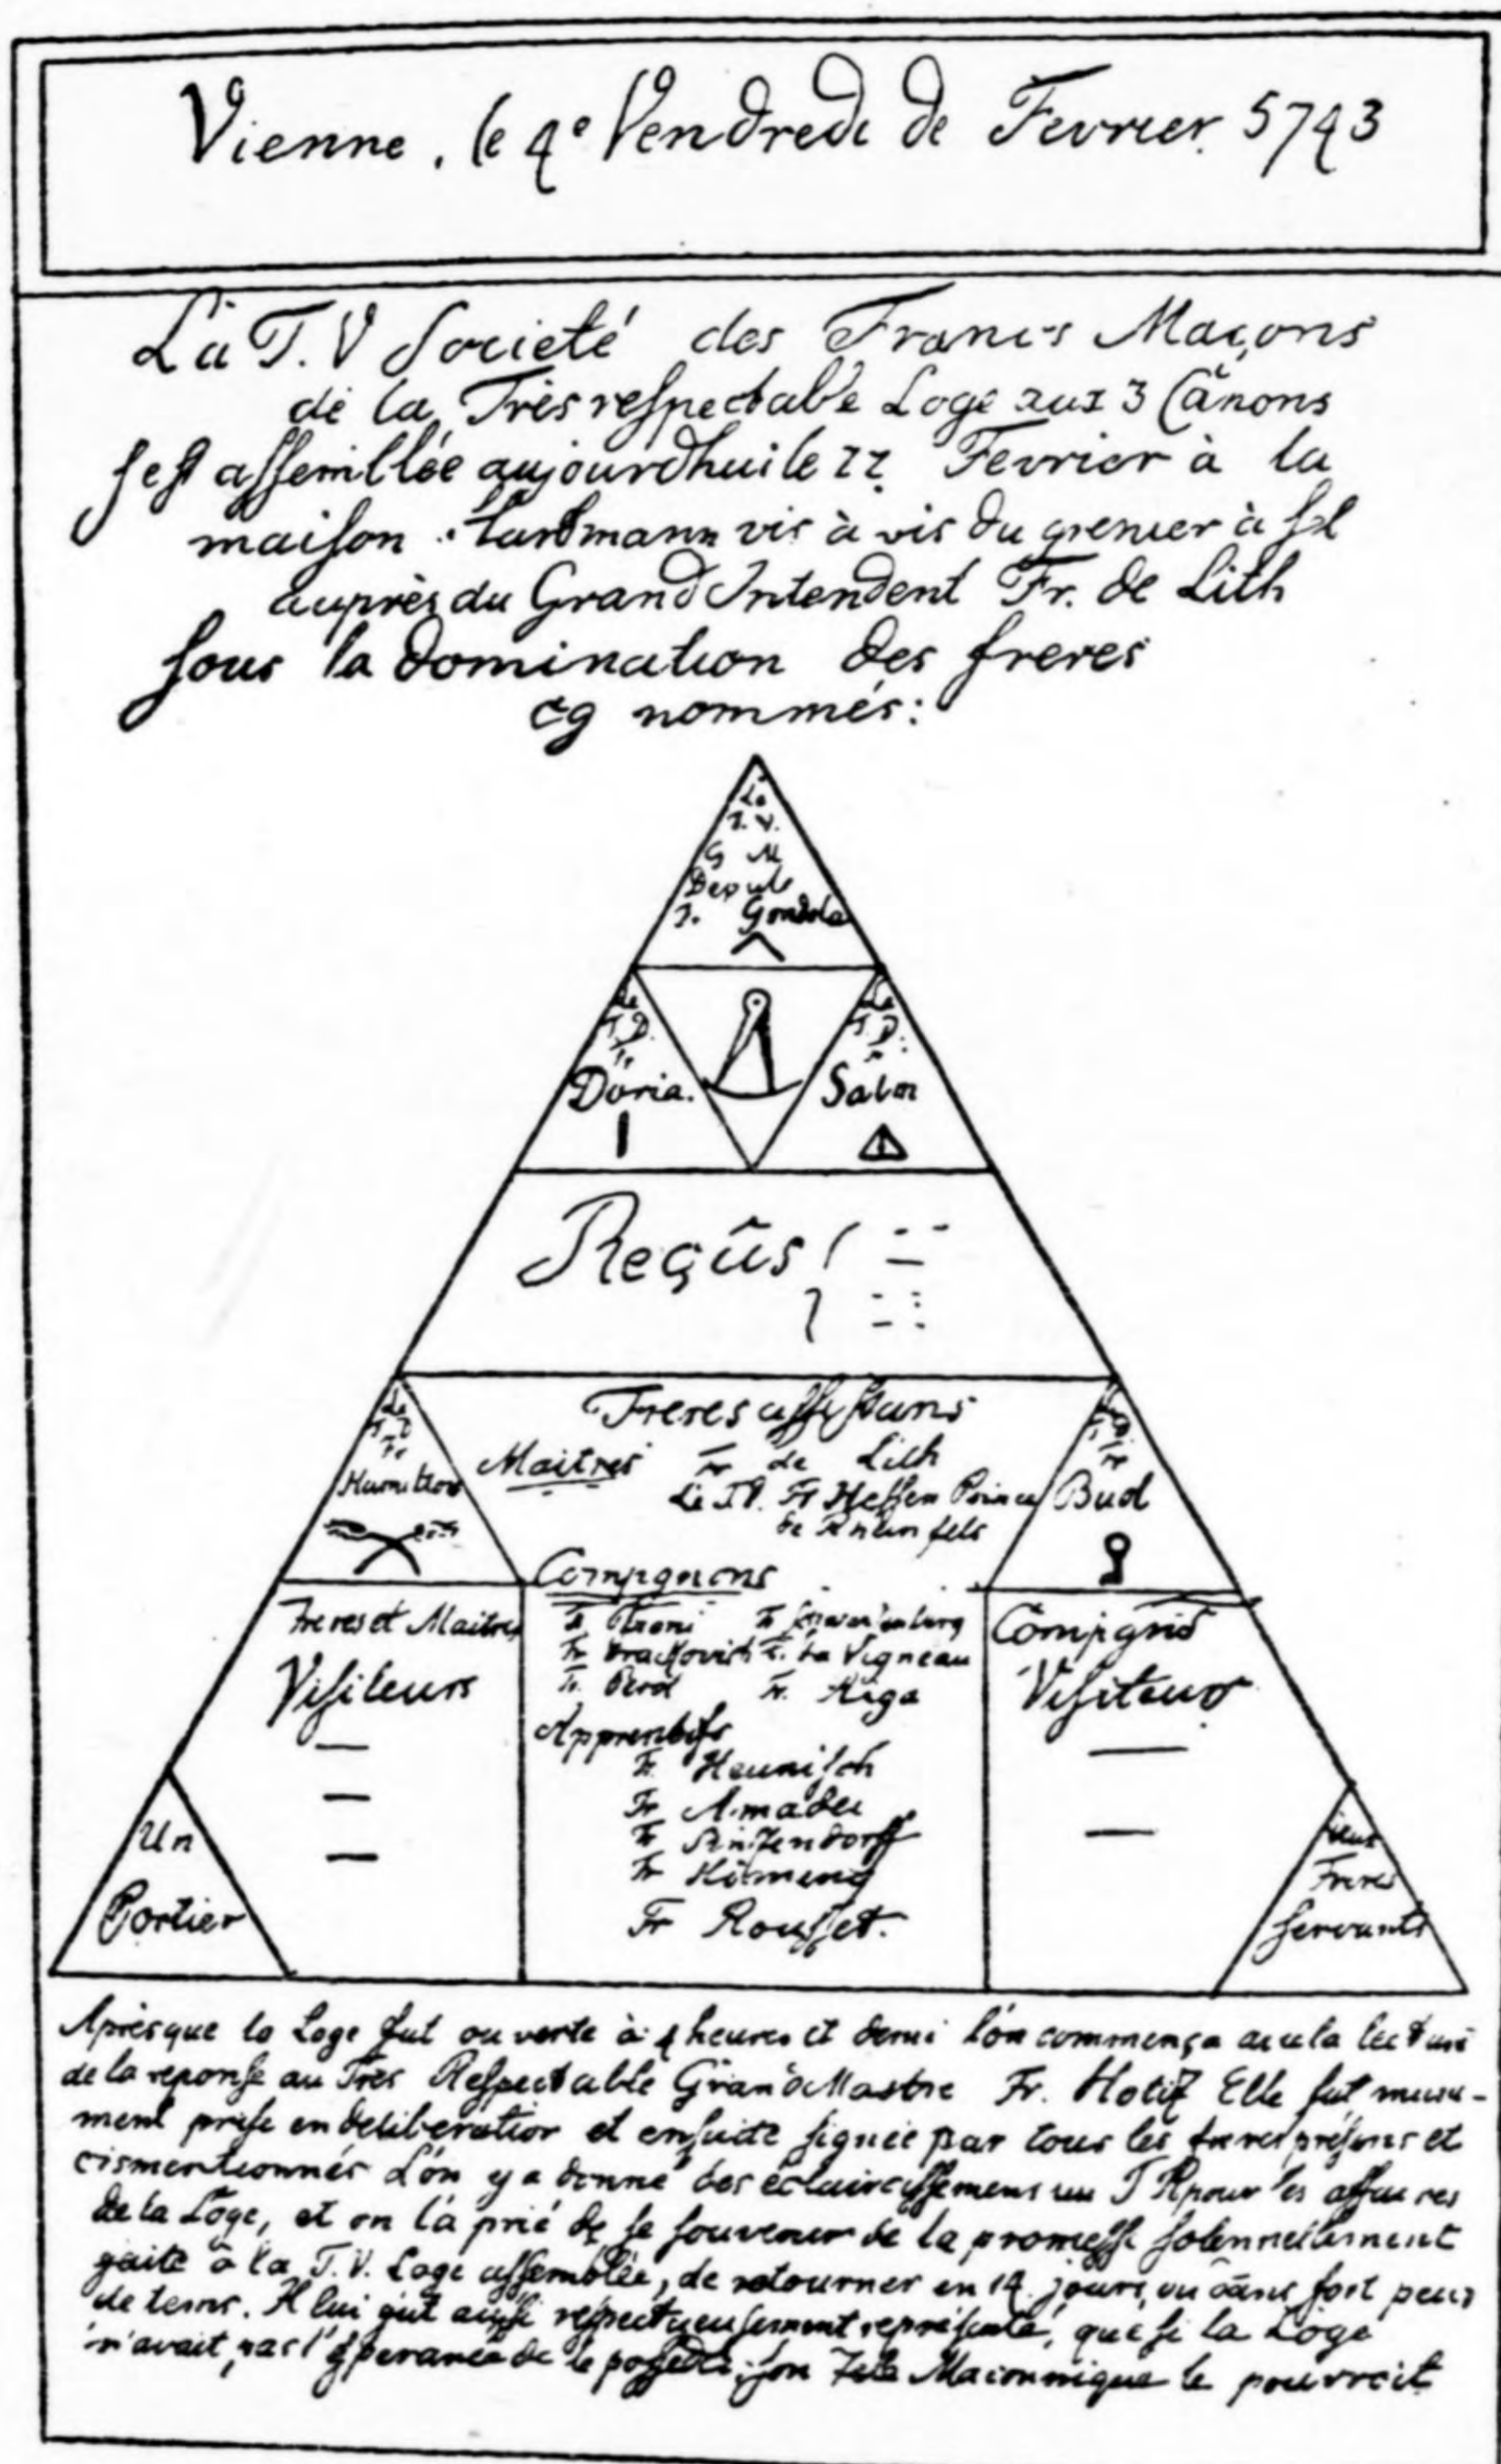 Vienne, le 4e Vendredi de Fevrier 5743
La T. V Societé des Francs Maçons
de la Très respectable Loge aux 3 Canons
s'est assemblée aujourdhui le 22 Fevrier à la
maison vis à vis du grenier à sel
auprès du Grand Intendent Fr. de Lith
sous la domination des freres
cy nommés:
Le
T. V.
G M
Depute
Gondola
Le
T. D.
Fr
Doria.
Le
T. D.
Fr
Reçûs
Le
T D
Fr
Freres assistans
Maitres Fr de Lith
Le T V. Fr Hessen Prince
de Rheinfels
T. D.
Fr
Bud
Compignons
Fr
Fr Fr. La Vigneau
Fr. Fr. Riga
Apprentifs
Fr. Heunisch
Fr Amadei
Fr Sinzendorff
Fr
Fr Rousset.
Freres et Maitres
Visiteurs
Compigns
Visiteurs
Un
Portier
Freres
servants
Après que la Loge fut ouverte à 4 heures et demi l'on commença avec la lecture
de la reponse au Très Respectable Grand Maitre Fr. Elle fut
ment prise en deliberation et ensuite signée par tous les freres présens et
cismentionnés L'on y a donné des eclaircissemens au T R pour les affaires
de la Loge, et on l'a prié de se souvenir de la promesse solennellement
faite à la T. V. Loge assemblée, de retourner en 14 jours, ou dans fort peux
de tems. Il lui fut aussi respectueusement représenté, que si la Loge
n'avait pas l'esperance de le posseder, son Zele Maconnique le pourroit